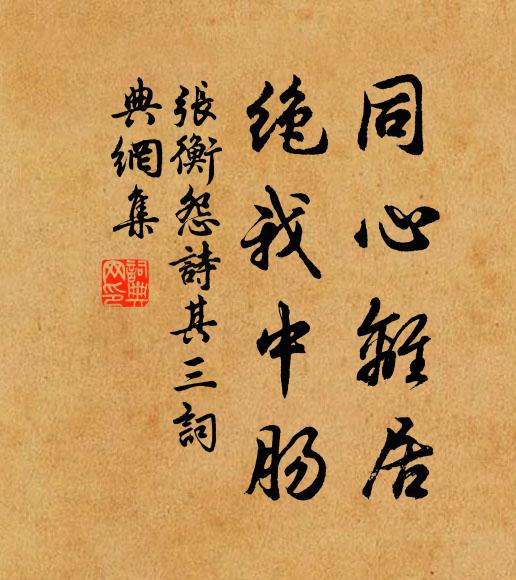 同心離居
绝我中肠
張衡怨詩其三詞
典網集
詞典
网印